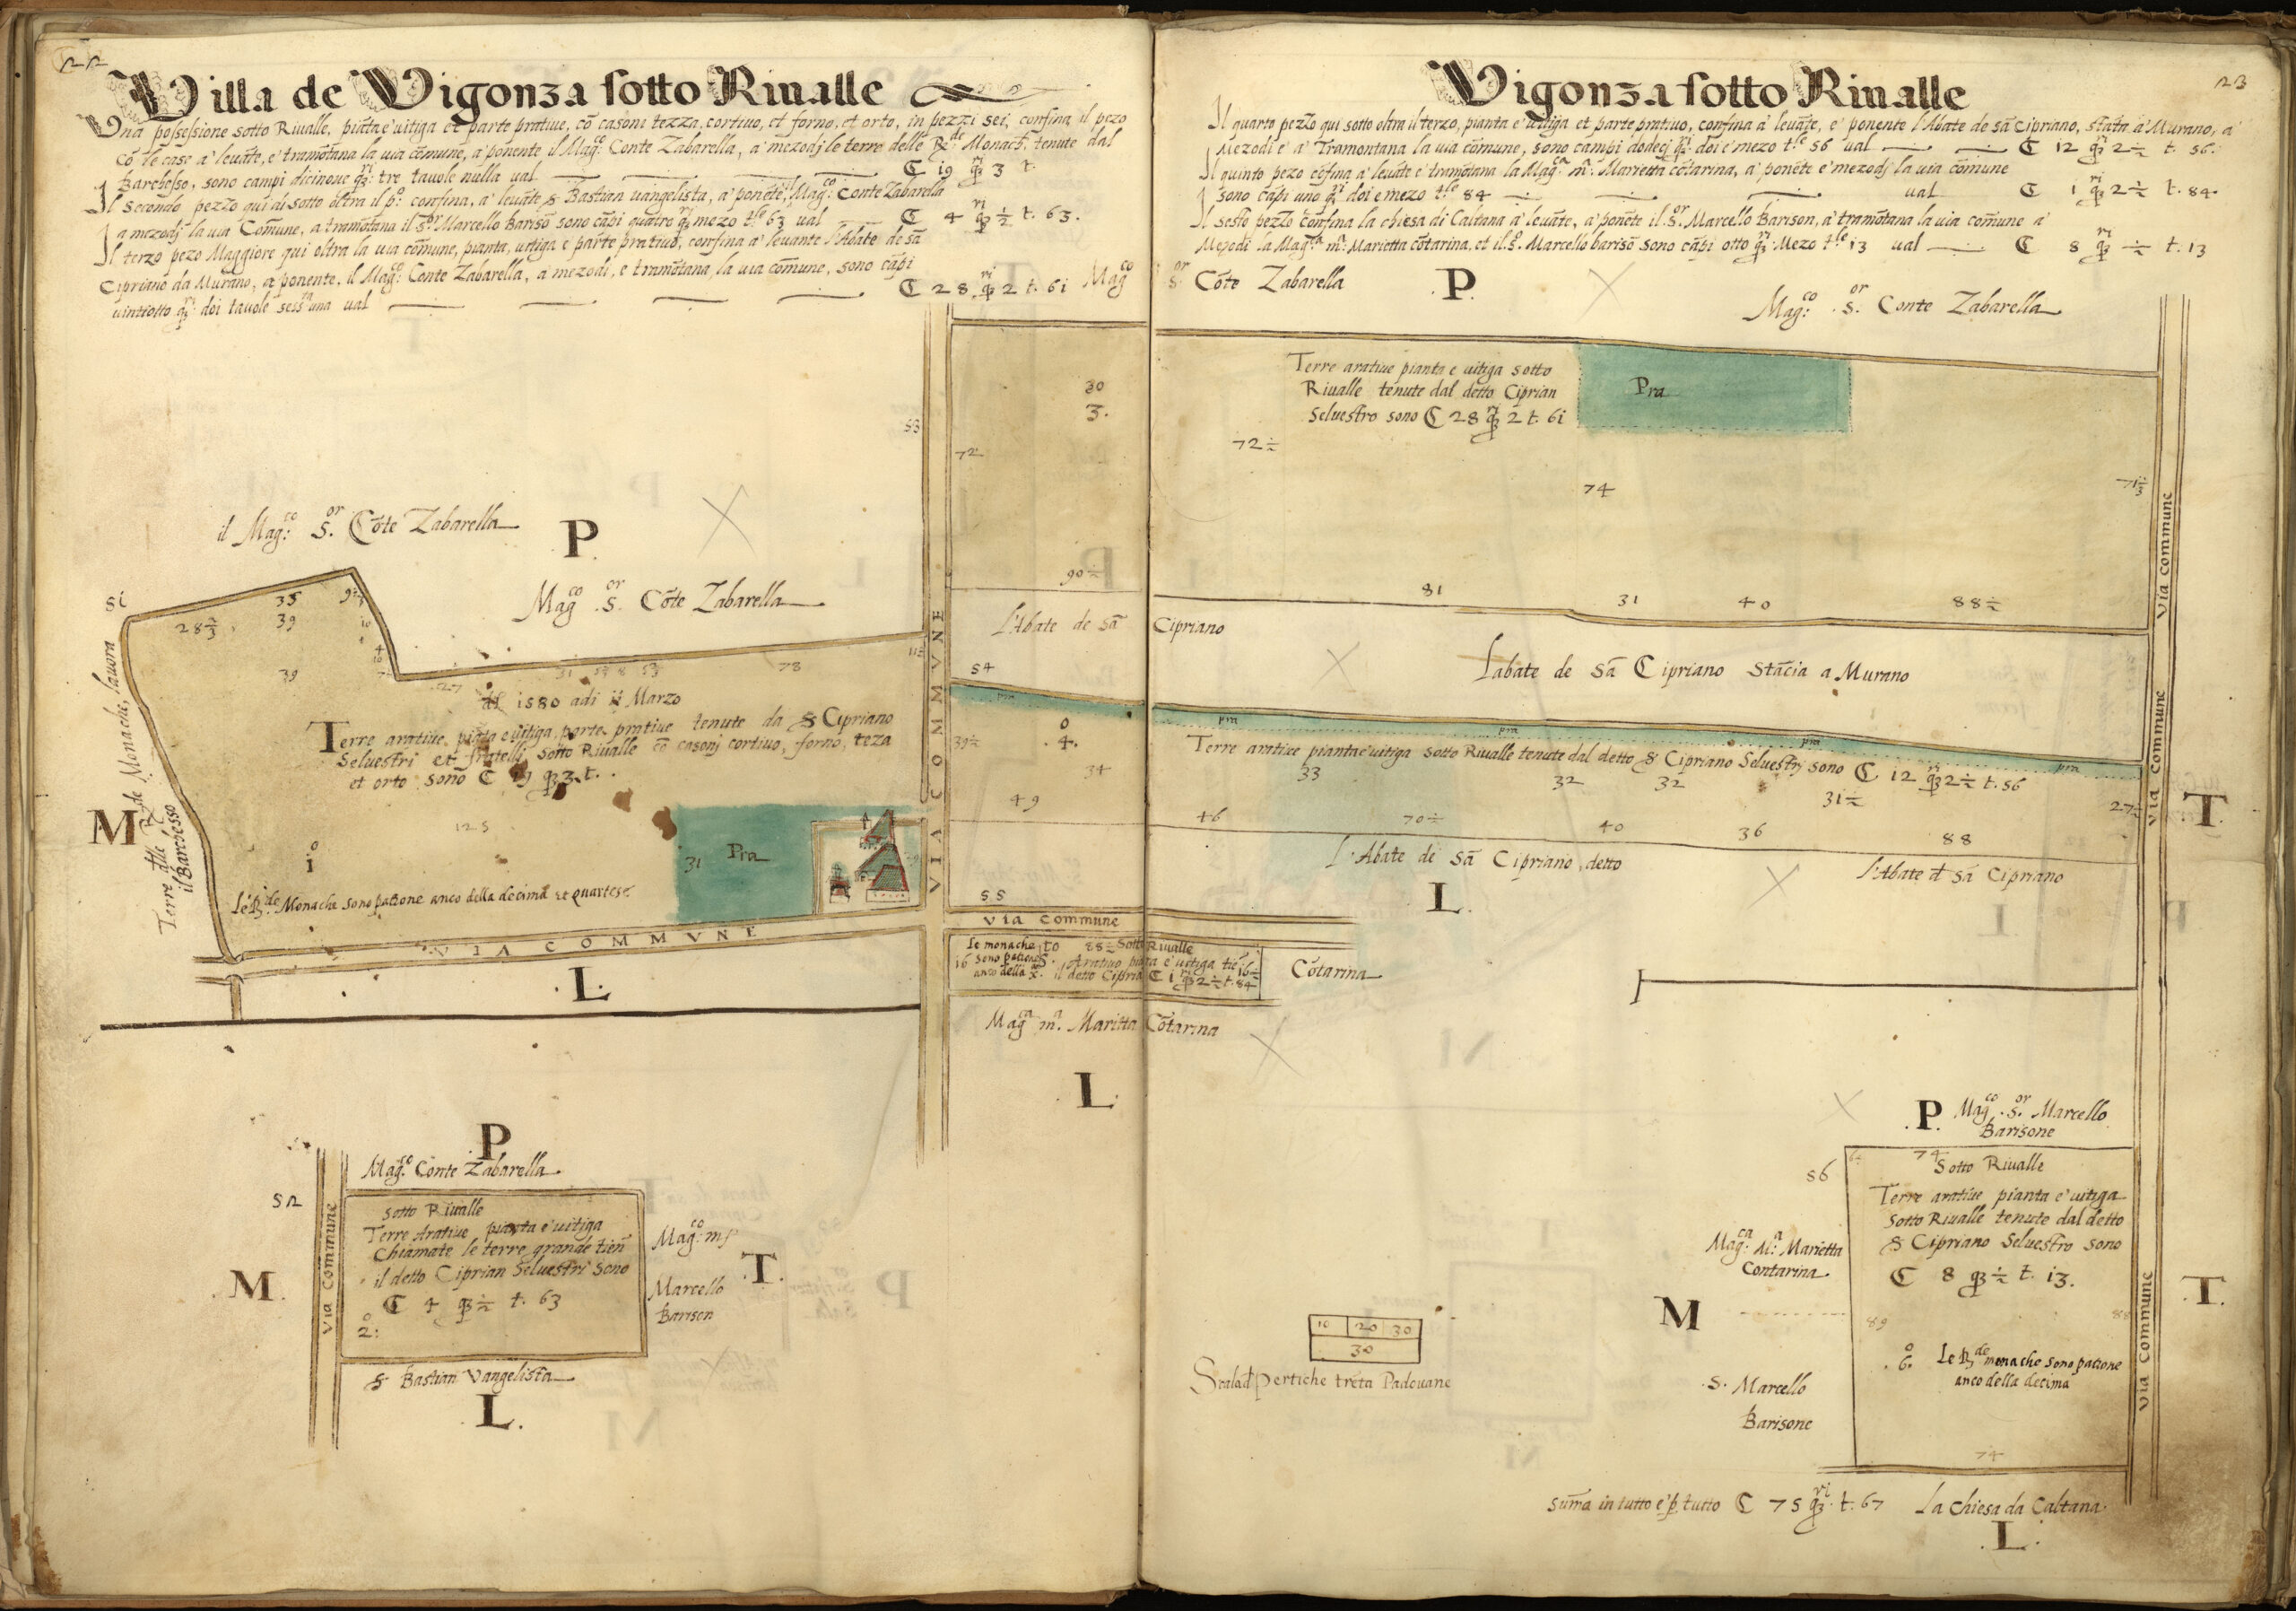 22
Villa de Vigonza sotto Riualle
Vna possessione sotto Riualle, piãta e' uitiga et parte pratiue, cõ casoni tezza, cortiuo, et forno, et orto, in pezzi sei, confina il pezo
cõ le case a' leuãte, e' tramõtana la uia cõmune, a' ponente il Mag.co Conte Zabarella, a' mezodj le terre delle R.de Monach. tenute dal
Barchesso, sono campi dicinoue q.ri tre tauole nulla ual C 19 q.ri 3 t.
Il secondo pezzo qui di sotto oltra il p.o confina, a' leuãte s Bastian uangelista, a' ponẽte, il Mag.co Conte Zabarella
a mezodj la uia Cõmune, a tramõtana il s.or Marcello Barisõ sono cãpi quatro q.ri mezo t.le 63 ual C 4 q.ri ½ t. 63.
Il terzo pezo Maggiore qui oltra la uia cõmune, pianta, uitiga e parte pratiuo, confina a' leuante l'Abate de sã
Cipriano da Murano, a' ponente, il Mag.co Conte Zabarella, a' mezodi, e tramõtana, la uia cõmune, sono cãpi
uintiotto q.ri doi tauole sessãta una ual C 28 q.ri 2 t. 61
Mag.co
53
72
30
3.
90 ½
il Mag.co S.or Cõte Zabarella
P.
Mag.co S.or Cõte Zabarella
51
35
39
28 ⅔
39
78
1580 adi Marzo
Terre aratiue, piãta e uitiga, parte pratiue tenute da s Cipriano
Seluestri et fratelli sotto Riualle cõ casonj cortiuo, forno, teza
et orto sono C 19 q 3 t.
125
1
31
Pra
M
Terre dlle R.de Monache, lauora
il Barchesso
Le R.de Monache sono patrone anco della decima et quartese
VIA COMMVNE
VIA COMMVNE
.L.
L'Abate de sã
54
pra
39 ½
4.
34
49
55
via commune
le monache
sono patrone
anco della x.
16
88 ½ Sotto Riualle
Aratiuo piãta e' uitiga tiẽ
il detto Cipriã C 1 q.ri 2 ½ t. 84
16 ½
Mag.ca m.a Maritta Cõtarina
L.
P.
Mag.co Conte Zabarella
52
sotto Riualle
Terre Aratiue pianta e' uitiga
Chiamate le terre grande tien
il detto Ciprian Seluestri sono
C 4 q ½ t. 63
2:
via Commune
M.
Mag.co
Marcello
Barison
T.
s Bastian Vangelista
L.
23
Vigonza sotto Riualle
Il quarto pezzo qui sotto oltra il terzo, pianta e' uitiga et parte pratiuo, confina a' leuãte, e' ponente l'Abate de sã Cipriano, stãta a' Murano, a'
Mezodi e' a' Tramontana la uia cõmune, sono campi dodecj q.ri doi e' mezo t.le 56 ual C 12 q.ri 2 ½ t. 56.
Il quinto pezo cõfina a' leuãte e' tramõtana la Mag.ca m.a Marietta cõtarina, a' ponẽte e' mezodj la uia cõmune
sono cãpi uno q.ri doi e mezo t.le 84 ual C 1 q.ri 2 ½ t. 84.
Il sesto pezzo cõnfina la chiesa di Caltana a' leuãte, a' ponẽte il s.or Marcello Barison, a' tramõtana la uia cõmune a'
Mezodi la Mag.ca m.a Marietta cõtarina, et il s.or Marcello barisõ sono cãpi otto q.ri Mezo t.le 13 ual C 8 q.ri ½ t. 13
s.or Cõte Zabarella
P.
Mag.co s.or Conte Zabarella
Terre aratiue pianta e uitiga sotto
Riualle tenute dal detto Ciprian
Seluestro sono C 28 q.ri 2 t. 61
Pra
72 ½
74
71 ⅓
81
31
40
88 ½
via commune
Cipriano
Labate de sã Cipriano stãcia a Murano
pra
pra
pra
pra
Terre aratiue pianta e uitiga sotto Riualle tenute dal detto s Cipriano Seluestrj sono C 12 q.ri 2 ½ t. 56
33
32
32
31 ½
27 ½
46
70 ½
40
36
88
via commune
T.
L'Abate de sã Cipriano, detto
L'Abate d sã Cipriano
L.
Cõtarina
P.
Mag.co s.or Marcello
Barisone
56
74
Sotto Riualle
Terre aratiue pianta e' uitiga
sotto Riualle tenute dal detto
s Cipriano Seluestro sono
C 8 q ½ t. 13.
Mag.ca M.a Marietta
Contarina.
M
89
88
6.
Le R.de monache sono patrone
anco della decima
s. Marcello
Barisone
74
via commune
T.
10
20
30
30
Scala d Pertiche trẽta Padouane
Sũma in tutto e' p tutto C 75 q.ri t. 67
La chiesa da Caltana.
.L.